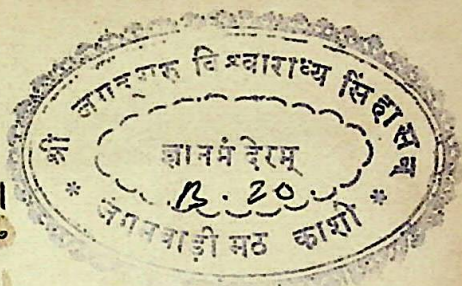 श्री जगद्गुरु विश्वाराध्य सिंहासन
ज्ञानमंदिरम्
B. 20.
* जंगमवाड़ी मठ काशी *